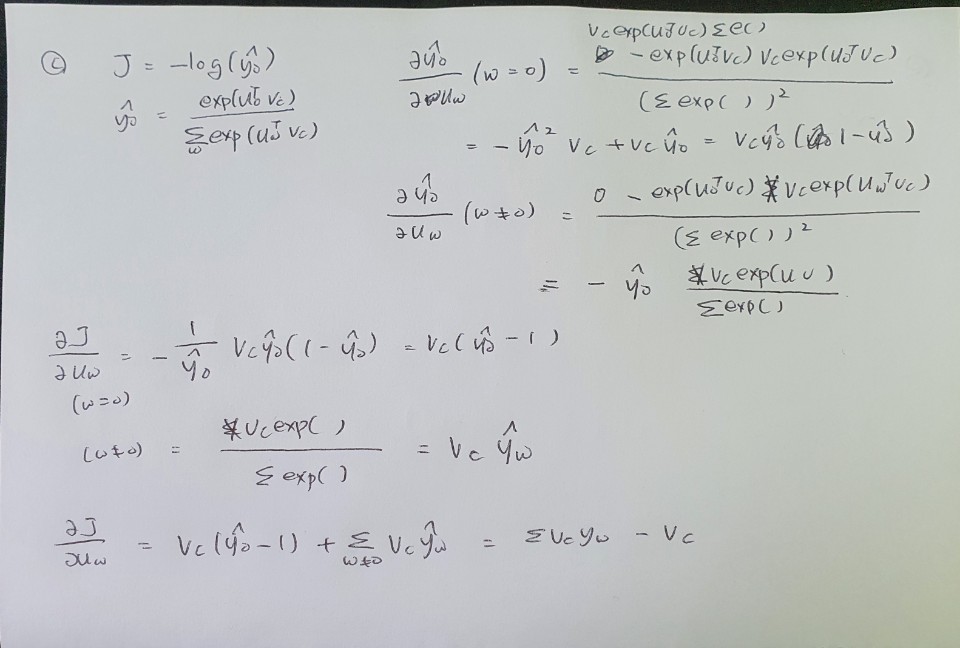 ⓒ J = -log(ŷo)
ŷo = exp(uoᵀ vc) / Σw exp(uwᵀ vc)
∂ŷo/∂uw (w = o) = (vc exp(uoᵀ vc) Σ e( ) - exp(uoᵀ vc) vc exp(uoᵀ vc)) / (Σ exp( ))²
= - ŷo² vc + vc ŷo = vc ŷo (1 - ŷo)
∂ŷo/∂uw (w ≠ o) = (0 - exp(uoᵀ vc) vc exp(uwᵀ vc)) / (Σ exp( ))²
= - ŷo vc exp(u v) / Σ exp( )
∂J/∂uw = - 1/ŷo vc ŷo (1 - ŷo) = vc (ŷo - 1)
(w = o)
(w ≠ o) = vc exp( ) / Σ exp( ) = vc ŷw
∂J/∂uw = vc (ŷo - 1) + Σw≠o vc ŷw = Σ vc yw - vc